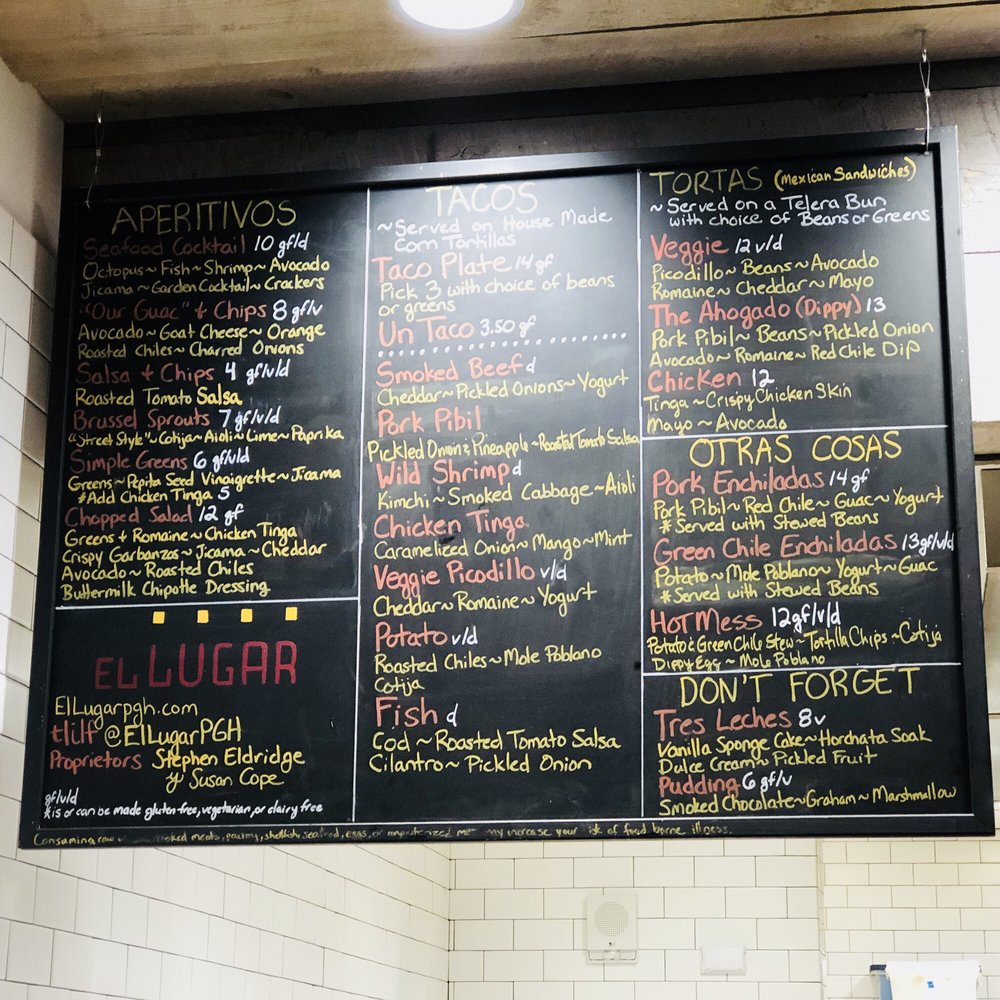 APERITIVOS
Seafood Cocktail 10 gf/d
Octopus~Fish~Shrimp~Avocado
Jicama~Garden Cocktail~Crackers
"Our Guac" & Chips 8 gf/v
Avocado~Goat Cheese~Orange
Roasted Chiles~Charred Onions
Salsa & Chips 4 gf/v/d
Roasted Tomato Salsa
Brussel Sprouts 7 gf/v/d
"Street Style"~Cotija~Aioli~Lime~Paprika
Simple Greens 6 gf/v/d
Greens~Pepita Seed Vinaigrette~Jicama
*Add Chicken Tinga 5
Chopped Salad 12 gf
Greens & Romaine~Chicken Tinga
Crispy Garbanzos~Jicama~Cheddar
Avocado~Roasted Chiles
Buttermilk Chipotle Dressing
EL LUGAR
ElLugarpgh.com
@ElLugarPGH
Proprietors Stephen Eldridge
y Susan Cope
gf/v/d
*is or can be made gluten-free, vegetarian, or dairy free
TACOS
~Served on House Made
Corn Tortillas
Taco Plate 14 gf
Pick 3 with choice of beans
or greens
Un Taco 3.50 gf
Smoked Beef d
Cheddar~Pickled Onions~Yogurt
Pork Pibil
Pickled Onion & Pineapple~Roasted Tomato Salsa
Wild Shrimp d
Kimchi~Smoked Cabbage~Aioli
Chicken Tinga
Caramelized Onion~Mango~Mint
Veggie Picodillo v/d
Cheddar~Romaine~Yogurt
Potato v/d
Roasted Chiles~Mole Poblano
Cotija
Fish d
Cod~Roasted Tomato Salsa
Cilantro~Pickled Onion
TORTAS (Mexican Sandwiches)
~Served on a Telera Bun
with choice of Beans or Greens
Veggie 12 v/d
Picodillo~Beans~Avocado
Romaine~Cheddar~Mayo
The Ahogado (Dippy) 13
Pork Pibil~Beans~Pickled Onion
Avocado~Romaine~Red Chile Dip
Chicken 12
Tinga~Crispy Chicken Skin
Mayo~Avocado
OTRAS COSAS
Pork Enchiladas 14 gf
Pork Pibil~Red Chile~Guac~Yogurt
*Served with Stewed Beans
Green Chile Enchiladas 13 gf/v/d
Potato~Mole Poblano~Yogurt~Guac
*Served with Stewed Beans
Hot Mess 12 gf/v/d
Potato & Green Chile Stew~Tortilla Chips~Cotija
Dippy Egg~Mole Poblano
DON'T FORGET
Tres Leches 8 v
Vanilla Sponge Cake~Horchata Soak
Dulce Cream~Pickled Fruit
Pudding 6 gf/v
Smoked Chocolate~Graham~Marshmallow
Consuming raw meats, poultry, shellfish, seafood, eggs, or increase your risk of food borne illness.